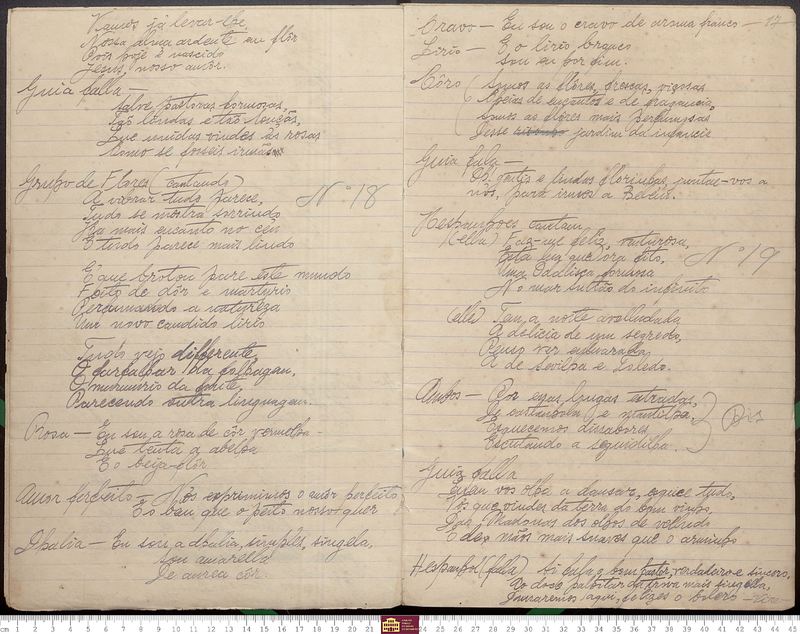 Vamos já levar-lhe
Nossa alma ardente em flôr
Pois hoje é nascido
Jesus, nosso amôr.
Guia falla —
Salve pastoras formosas,
Tão lindas e tão louçãs,
Que unidas vindes às rosas
Como se fosseis irmãs
Grupo de Flores (cantando)
Nº 18
A vibrar tudo parece,
Tudo se mostra sorrindo
Ha mais encanto no céu
E tudo parece mais lindo
É que brotou para este mundo
Feito de dôr e martyrio
Perfumando a natureza
Um novo candido lirio
Tudo vejo differente,
O farfalhar da folhagem,
O murmurio da fonte,
Parecendo outra linguagem.
Rosa — Eu sou a rosa de côr vermelha
Que tenta a abelha
E o beija-flôr
Amor Perfeito — Nós exprimimos o amôr perfeito
E o bem que o peito nosso quer
Dhalia — Eu sou a dhalia, simples, singela,
Sou amarella
De aurea côr.
Cravo — Eu sou o cravo de aroma franco — 17
Lirio — E o lirio branco
Sou eu por fim.
Côro (Somos as flôres, frescas, viçosas
Cheias de encantos e de fragancia,
Somos as flôres mais perfumosas
Desse jardim da infancia
Guia fala —
Oh gentis e lindas florinhas, juntae-vos a
nós, para irmos a Belém.
Hespanhoes cantam
(ella) Faz-me feliz, venturosa,
Nº 19
Esta voz que ora fito,
Uma Odalisca formosa
No mar sultão do infinito
(elle) Tem a noite avelludada
A delicia de um segredo,
Penso ver enluarada
A de Sevilha e Toledo.
Ambos — Por essas longas estradas,
De castanhola e mantilha,
Esquecemos dissabores
Escutando a seguidilha.
Bis
Guia falla
Quem vos olha a dansar, esquece tudo,
Vós que vindes da terra do bom vinho,
Oh! Madonas dos olhos de veludo
E das mãos mais suaves que o arminho
Hespanhol (falla) Ai bula, o bom pastor, verdadeiro e sincero,
Ao doce palpitar da trova mais singella,
aqui, felizes o bolero